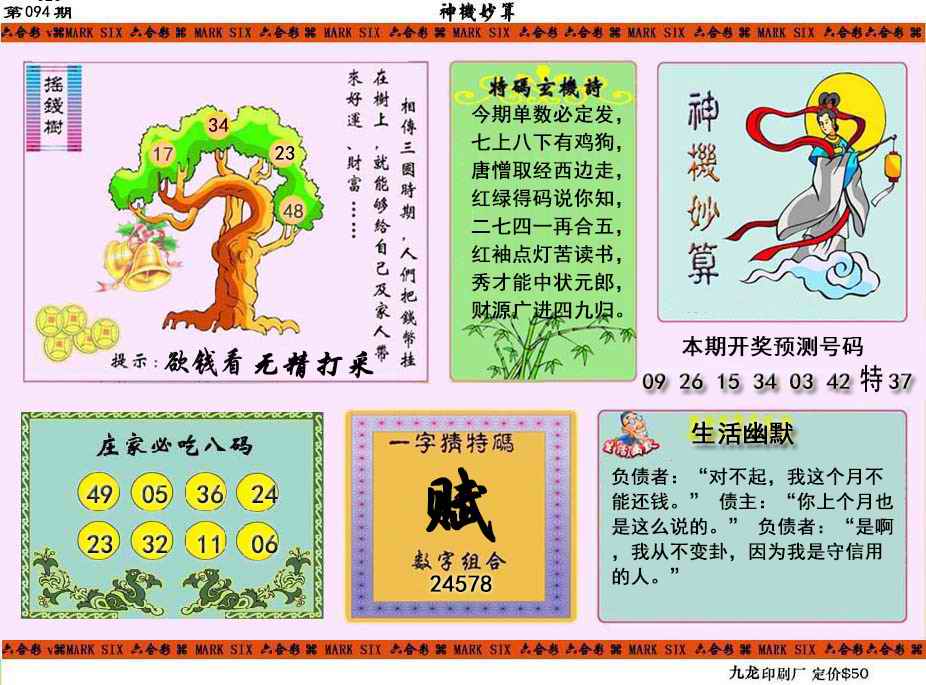 第094期
神機妙算
六合彩 MARK SIX 六合彩 MARK SIX 六合彩 MARK SIX 六合彩 MARK SIX 六合彩 MARK SIX 六合彩 MARK SIX 六合彩 六合彩
搖錢樹
34
17
23
48
相傳三國時期，人們把錢幣挂
在樹上，就能够給自己及家人帶
來好運、財富……
提示：欲钱看无精打采
特碼玄機詩
今期单数必定发，
七上八下有鸡狗，
唐憎取经西边走，
红绿得码说你知，
二七四一再合五，
红袖点灯苦读书，
秀才能中状元郎，
财源广进四九归。
神機妙算
本期开奖预测号码
09 26 15 34 03 42 特37
庄家必吃八码
49 05 36 24
23 32 11 06
一字猜特碼
赋
数字组合
24578
生活幽默
生活幽默
负债者：“对不起，我这个月不
能还钱。” 债主：“你上个月也
是这么说的。” 负债者：“是啊
，我从不变卦，因为我是守信用
的人。”
六合彩 MARK SIX 六合彩 MARK SIX 六合彩 MARK SIX 六合彩 MARK SIX 六合彩 MARK SIX 六合彩 MARK SIX 六合彩 六合彩
九龙印刷厂 定价$50